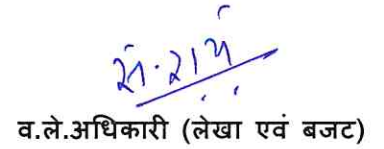 सं. राय
व.ले.अधिकारी (लेखा एवं बजट)